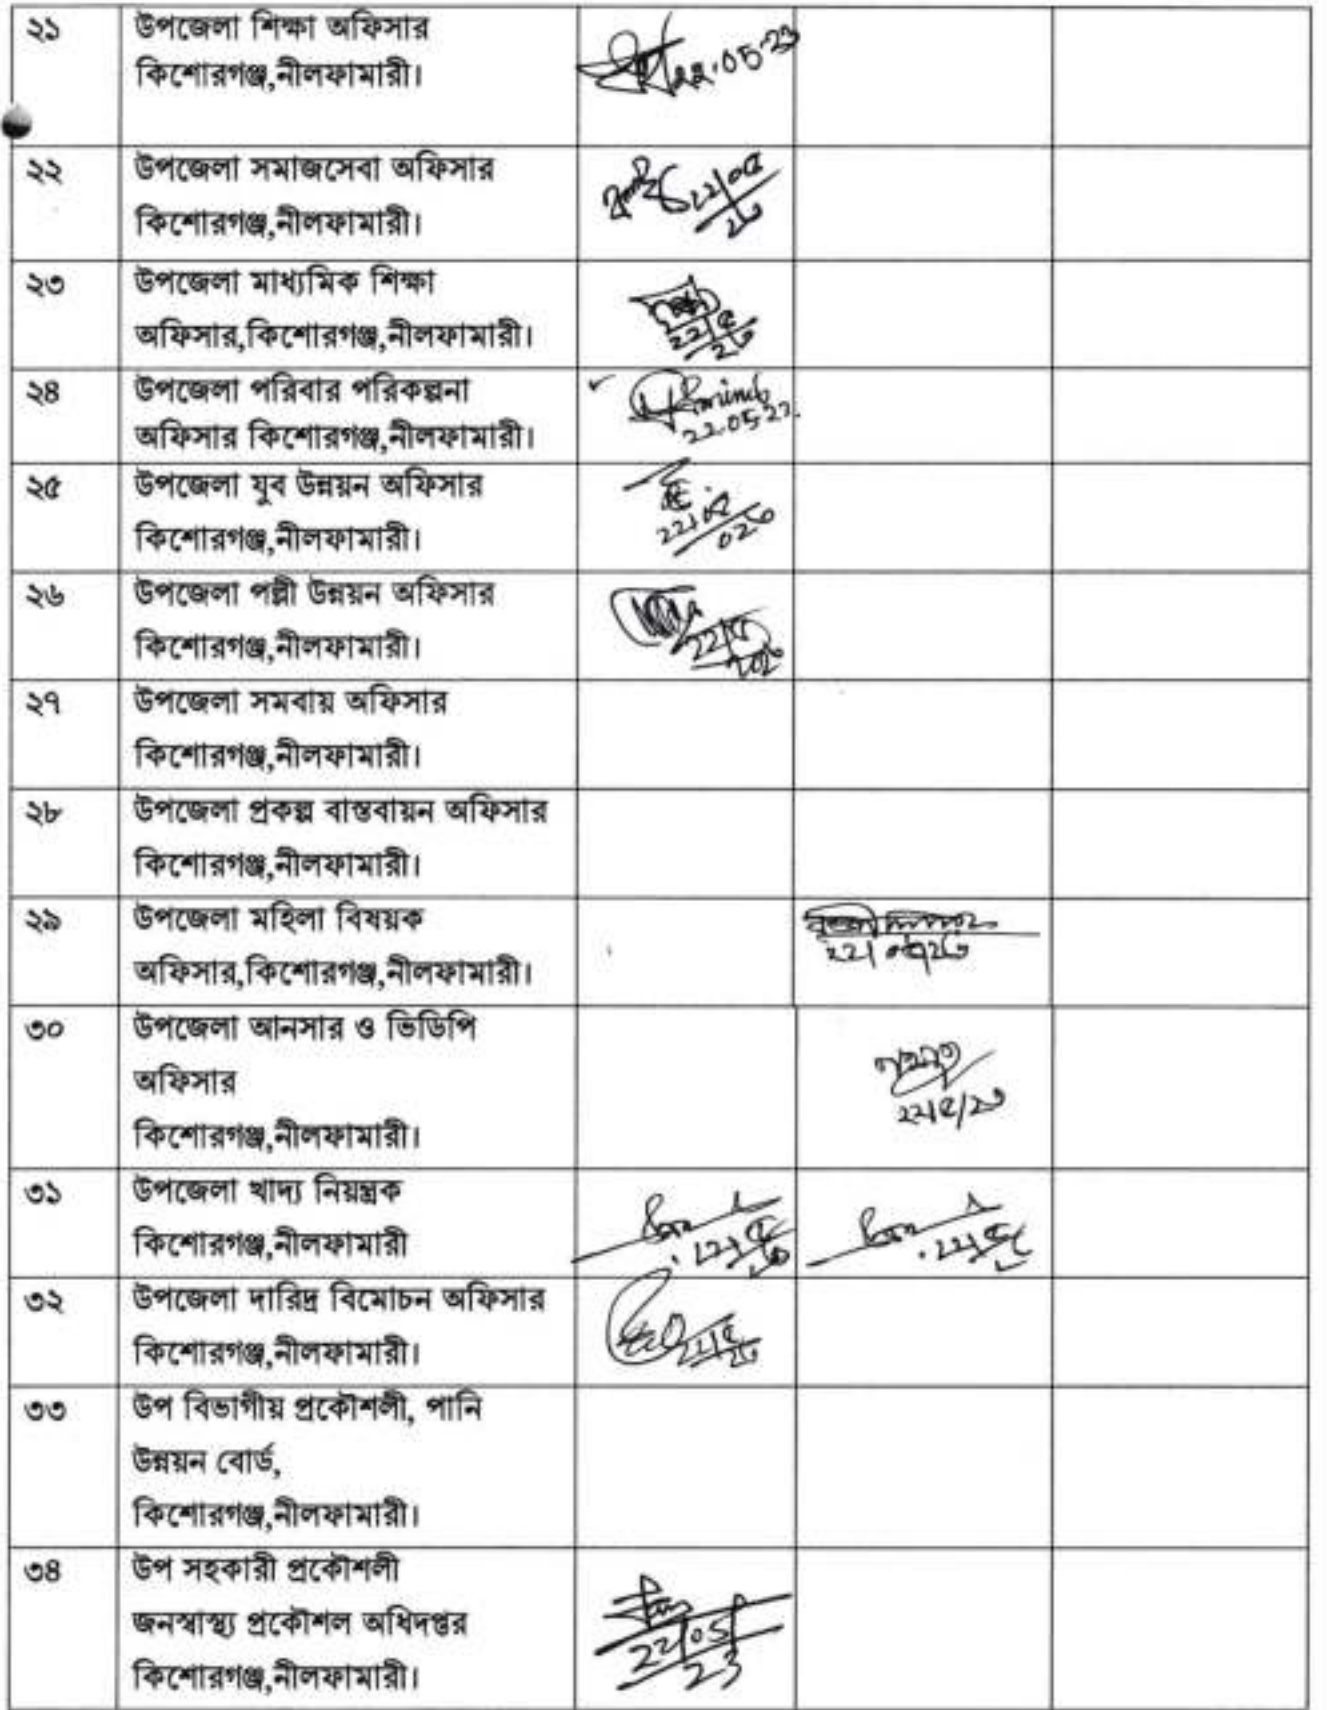 ২১ উপজেলা শিক্ষা অফিসার
কিশোরগঞ্জ,নীলফামারী।
২২.০৫.২৩
২২ উপজেলা সমাজসেবা অফিসার
কিশোরগঞ্জ,নীলফামারী।
২২/০৫/২৩
২৩ উপজেলা মাধ্যমিক শিক্ষা
অফিসার,কিশোরগঞ্জ,নীলফামারী।
২২/৫/২৩
২৪ উপজেলা পরিবার পরিকল্পনা
অফিসার কিশোরগঞ্জ,নীলফামারী।
22.05.23.
২৫ উপজেলা যুব উন্নয়ন অফিসার
কিশোরগঞ্জ,নীলফামারী।
২৬ উপজেলা পল্লী উন্নয়ন অফিসার
কিশোরগঞ্জ,নীলফামারী।
২৭ উপজেলা সমবায় অফিসার
কিশোরগঞ্জ,নীলফামারী।
২৮ উপজেলা প্রকল্প বাস্তবায়ন অফিসার
কিশোরগঞ্জ,নীলফামারী।
২৯ উপজেলা মহিলা বিষয়ক
অফিসার,কিশোরগঞ্জ,নীলফামারী।
২২/০৫/২৩
৩০ উপজেলা আনসার ও ভিডিপি
অফিসার
কিশোরগঞ্জ,নীলফামারী।
২২/৫/২৩
৩১ উপজেলা খাদ্য নিয়ন্ত্রক
কিশোরগঞ্জ,নীলফামারী
৩২ উপজেলা দারিদ্র বিমোচন অফিসার
কিশোরগঞ্জ,নীলফামারী।
২২/৫/২৩
৩৩ উপ বিভাগীয় প্রকৌশলী, পানি
উন্নয়ন বোর্ড,
কিশোরগঞ্জ,নীলফামারী।
৩৪ উপ সহকারী প্রকৌশলী
জনস্বাস্থ্য প্রকৌশল অধিদপ্তর
কিশোরগঞ্জ,নীলফামারী।
22/05/23